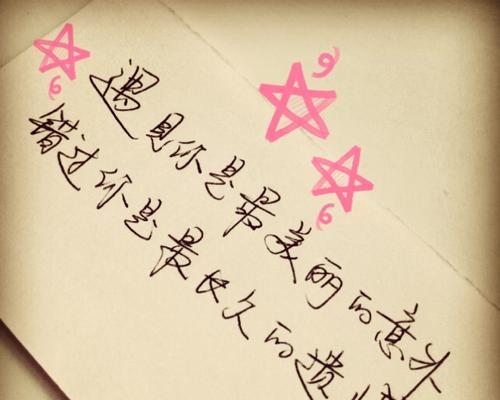 遇见你是最美丽的意外
错过你是最长久的遗